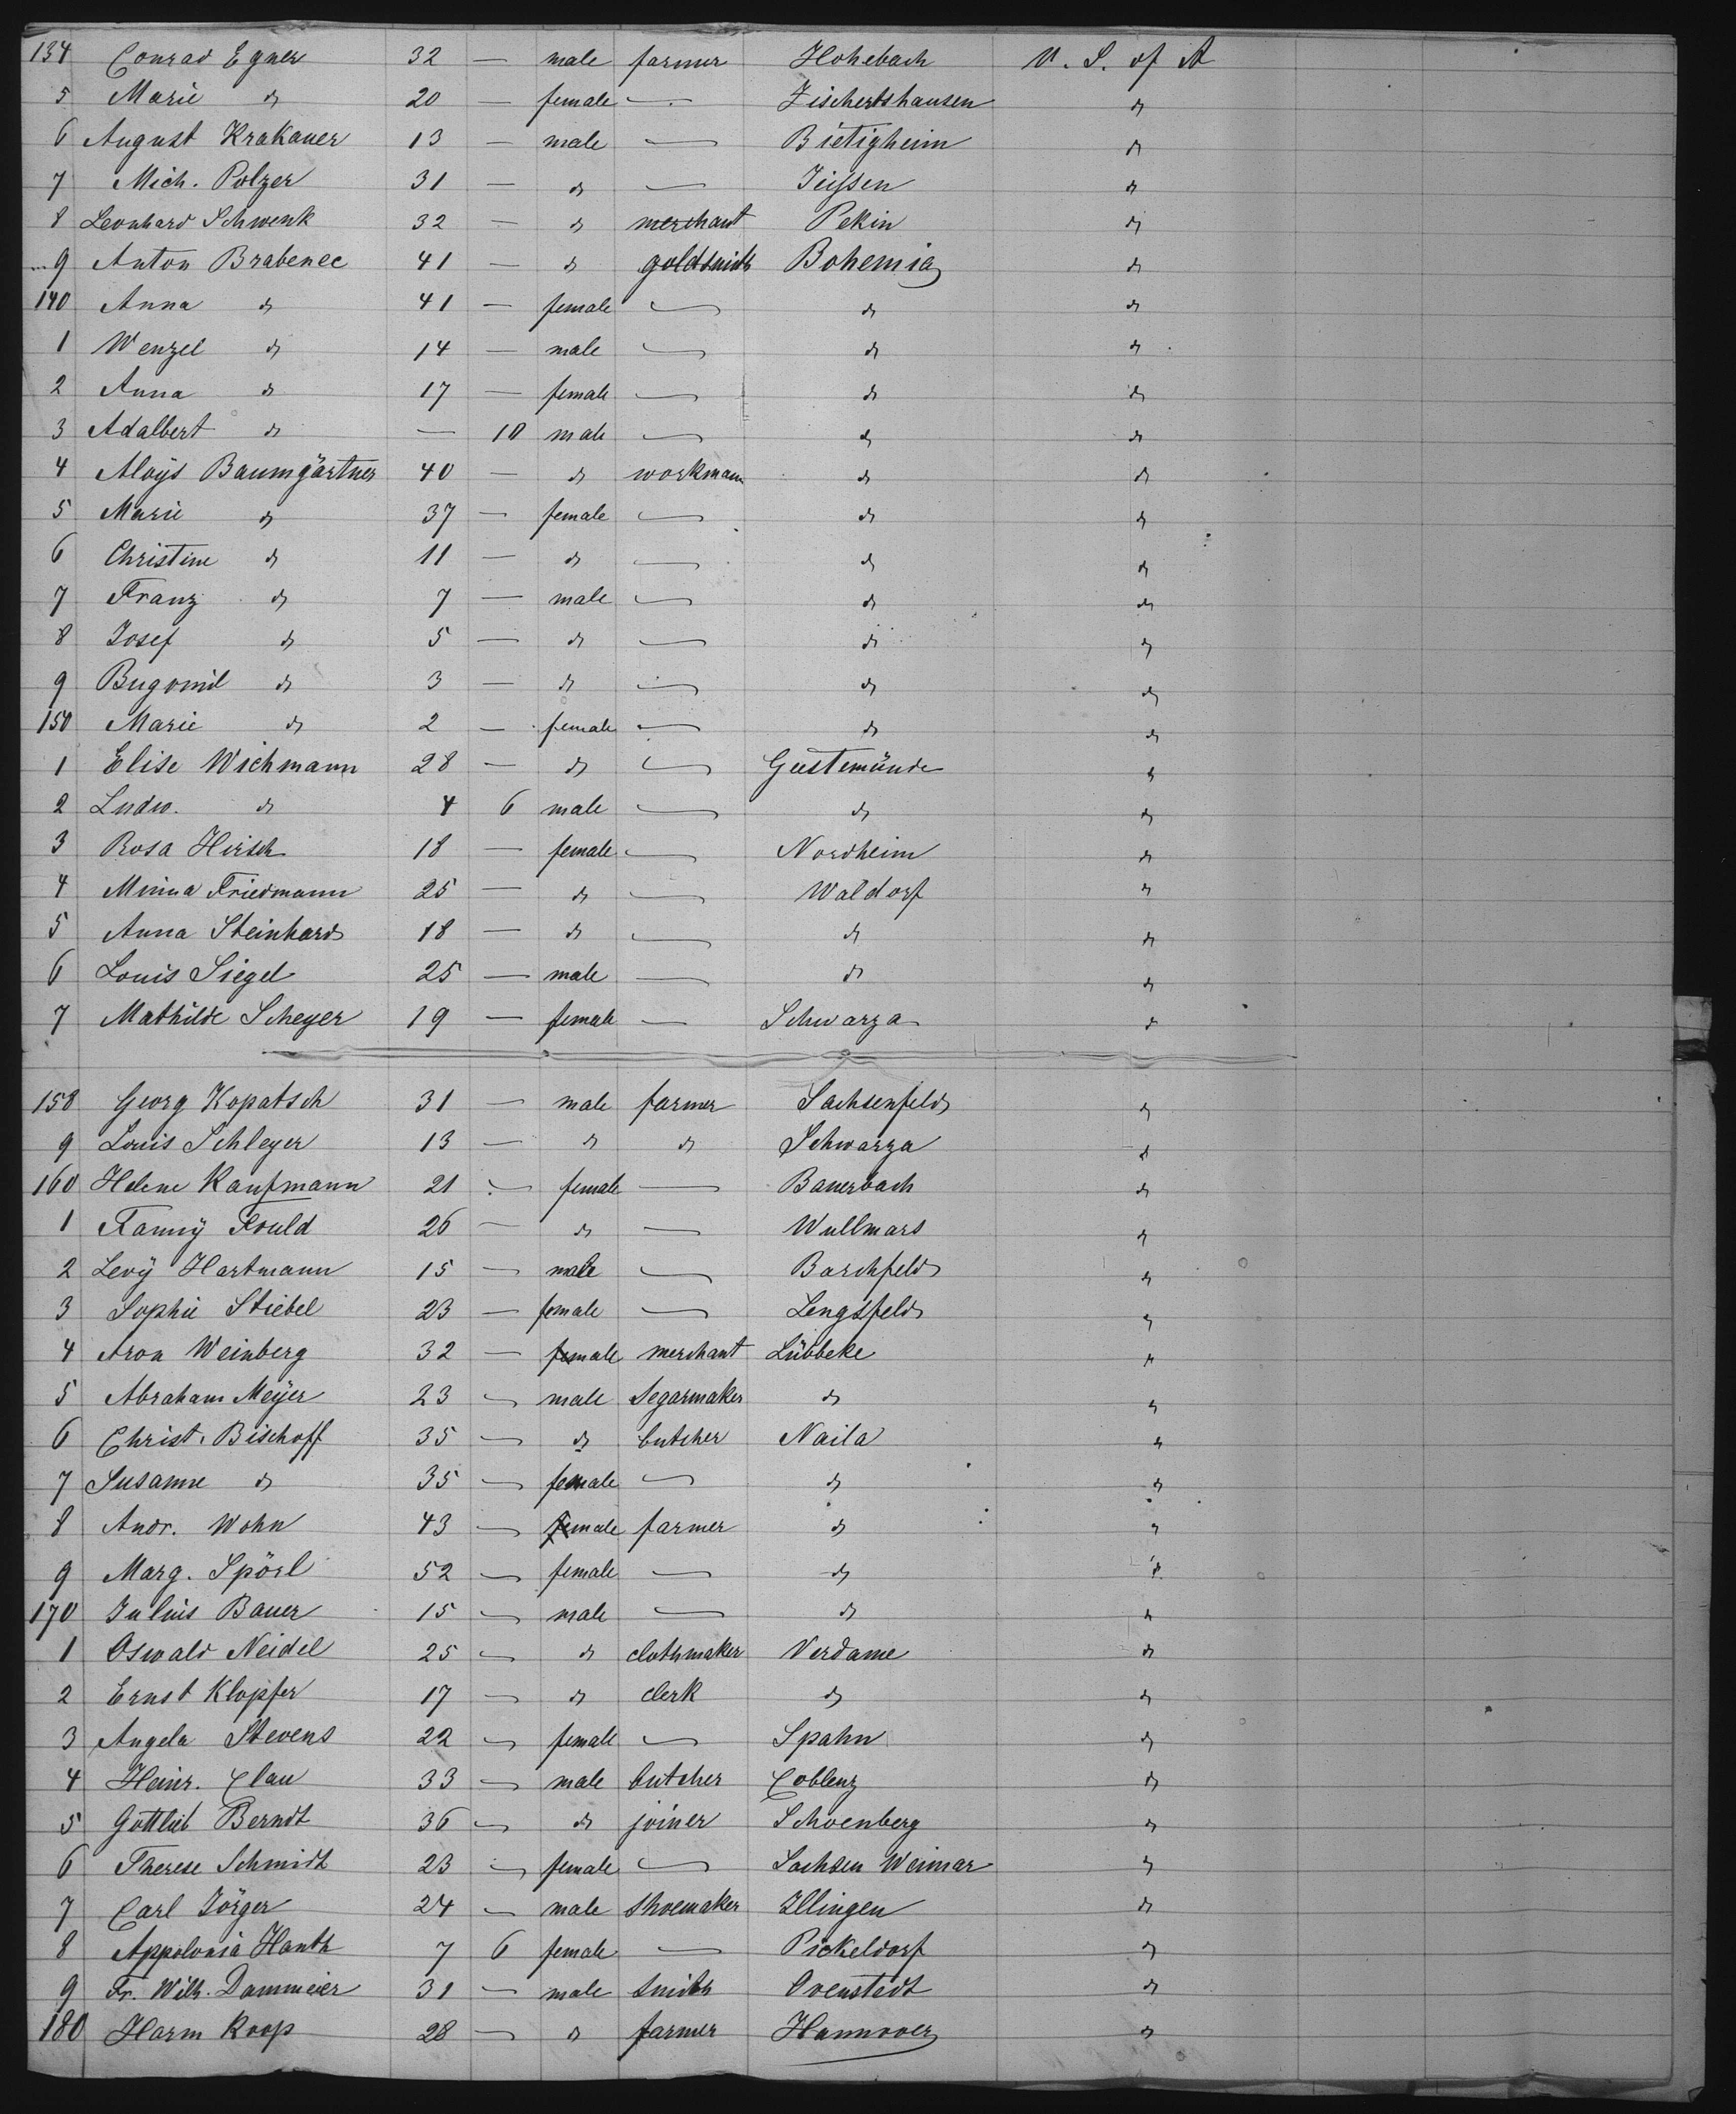 134 Conrad Egner 32 — male farmer Hohebach U. S. of A
5 Marie do 20 — female — Zischertshausen do
6 August Krakauer 13 — male — Bietigheim do
7 Mich. Polzer 31 — do — Jüssen do
8 Leonhard Schwenk 32 — do merchant Pekin do
9 Anton Brabenec 41 — do goldsmith Bohemia do
140 Anna do 41 — female — do do
1 Wenzel do 14 — male — do do
2 Anna do 17 — female — do do
3 Adalbert do — 10 male — do do
4 Aloys Baumgärtner 40 — do workman do do
5 Marie do 37 — female — do do
6 Christine do 11 — do — do do
7 Franz do 7 — male — do do
8 Josef do 5 — do — do do
9 Bugomil do 3 — do — do do
150 Marie do 2 — female — do do
1 Elise Wichmann 28 — do — Geestemünde do
2 Ludw. do 4 6 male — do do
3 Rosa Hirsch 18 — female — Nordheim do
4 Minna Friedmann 25 — do — Waldorf do
5 Anna Steinhard 18 — do — do do
6 Louis Siegel 25 — male — do do
7 Mathilde Scheyer 19 — female — Schwarza do
158 Georg Kopatsch 31 — male farmer Sachsenfeld do
9 Louis Schleyer 13 — do do Schwarza do
160 Helene Kaufmann 21 — female — Bauerbach do
1 Fanny Fould 26 — do — Wullmars do
2 Levy Hartmann 15 — male — Barchfeld do
3 Sophie Stiebel 23 — female — Lengsfeld do
4 Aron Weinberg 32 — female merchant Lübbeke do
5 Abraham Meyer 23 — male Segarmaker do do
6 Christ. Bischoff 35 — do butcher Naila do
7 Susanne do 35 — female — do do
8 Andr. Wohn 43 — female farmer do do
9 Marg. Spörl 52 — female — do do
170 Julius Bauer 15 — male — do do
1 Oswald Neidel 25 — do clothmaker Verdame do
2 Ernst Klopfer 17 — do clerk do do
3 Angela Stevens 22 — female — Spahn do
4 Heinr. Clau 33 — male butcher Coblenz do
5 Gottlieb Berndt 36 — do joiner Schoenberg do
6 Therese Schmidt 23 — female — Sachsen Weimar do
7 Carl Jörger 24 — male shoemaker Illingen do
8 Appolonia Hanth 7 6 female — Pickeldorf do
9 Fr. Wilh. Dammeier 31 — male smith Ovenstädt do
180 Harm Koop 28 — do farmer Hannover do